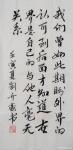 我们曾如此期盼外界的
认可到最后才知道世
界是自己的与他人毫无
关系
壬寅夏书